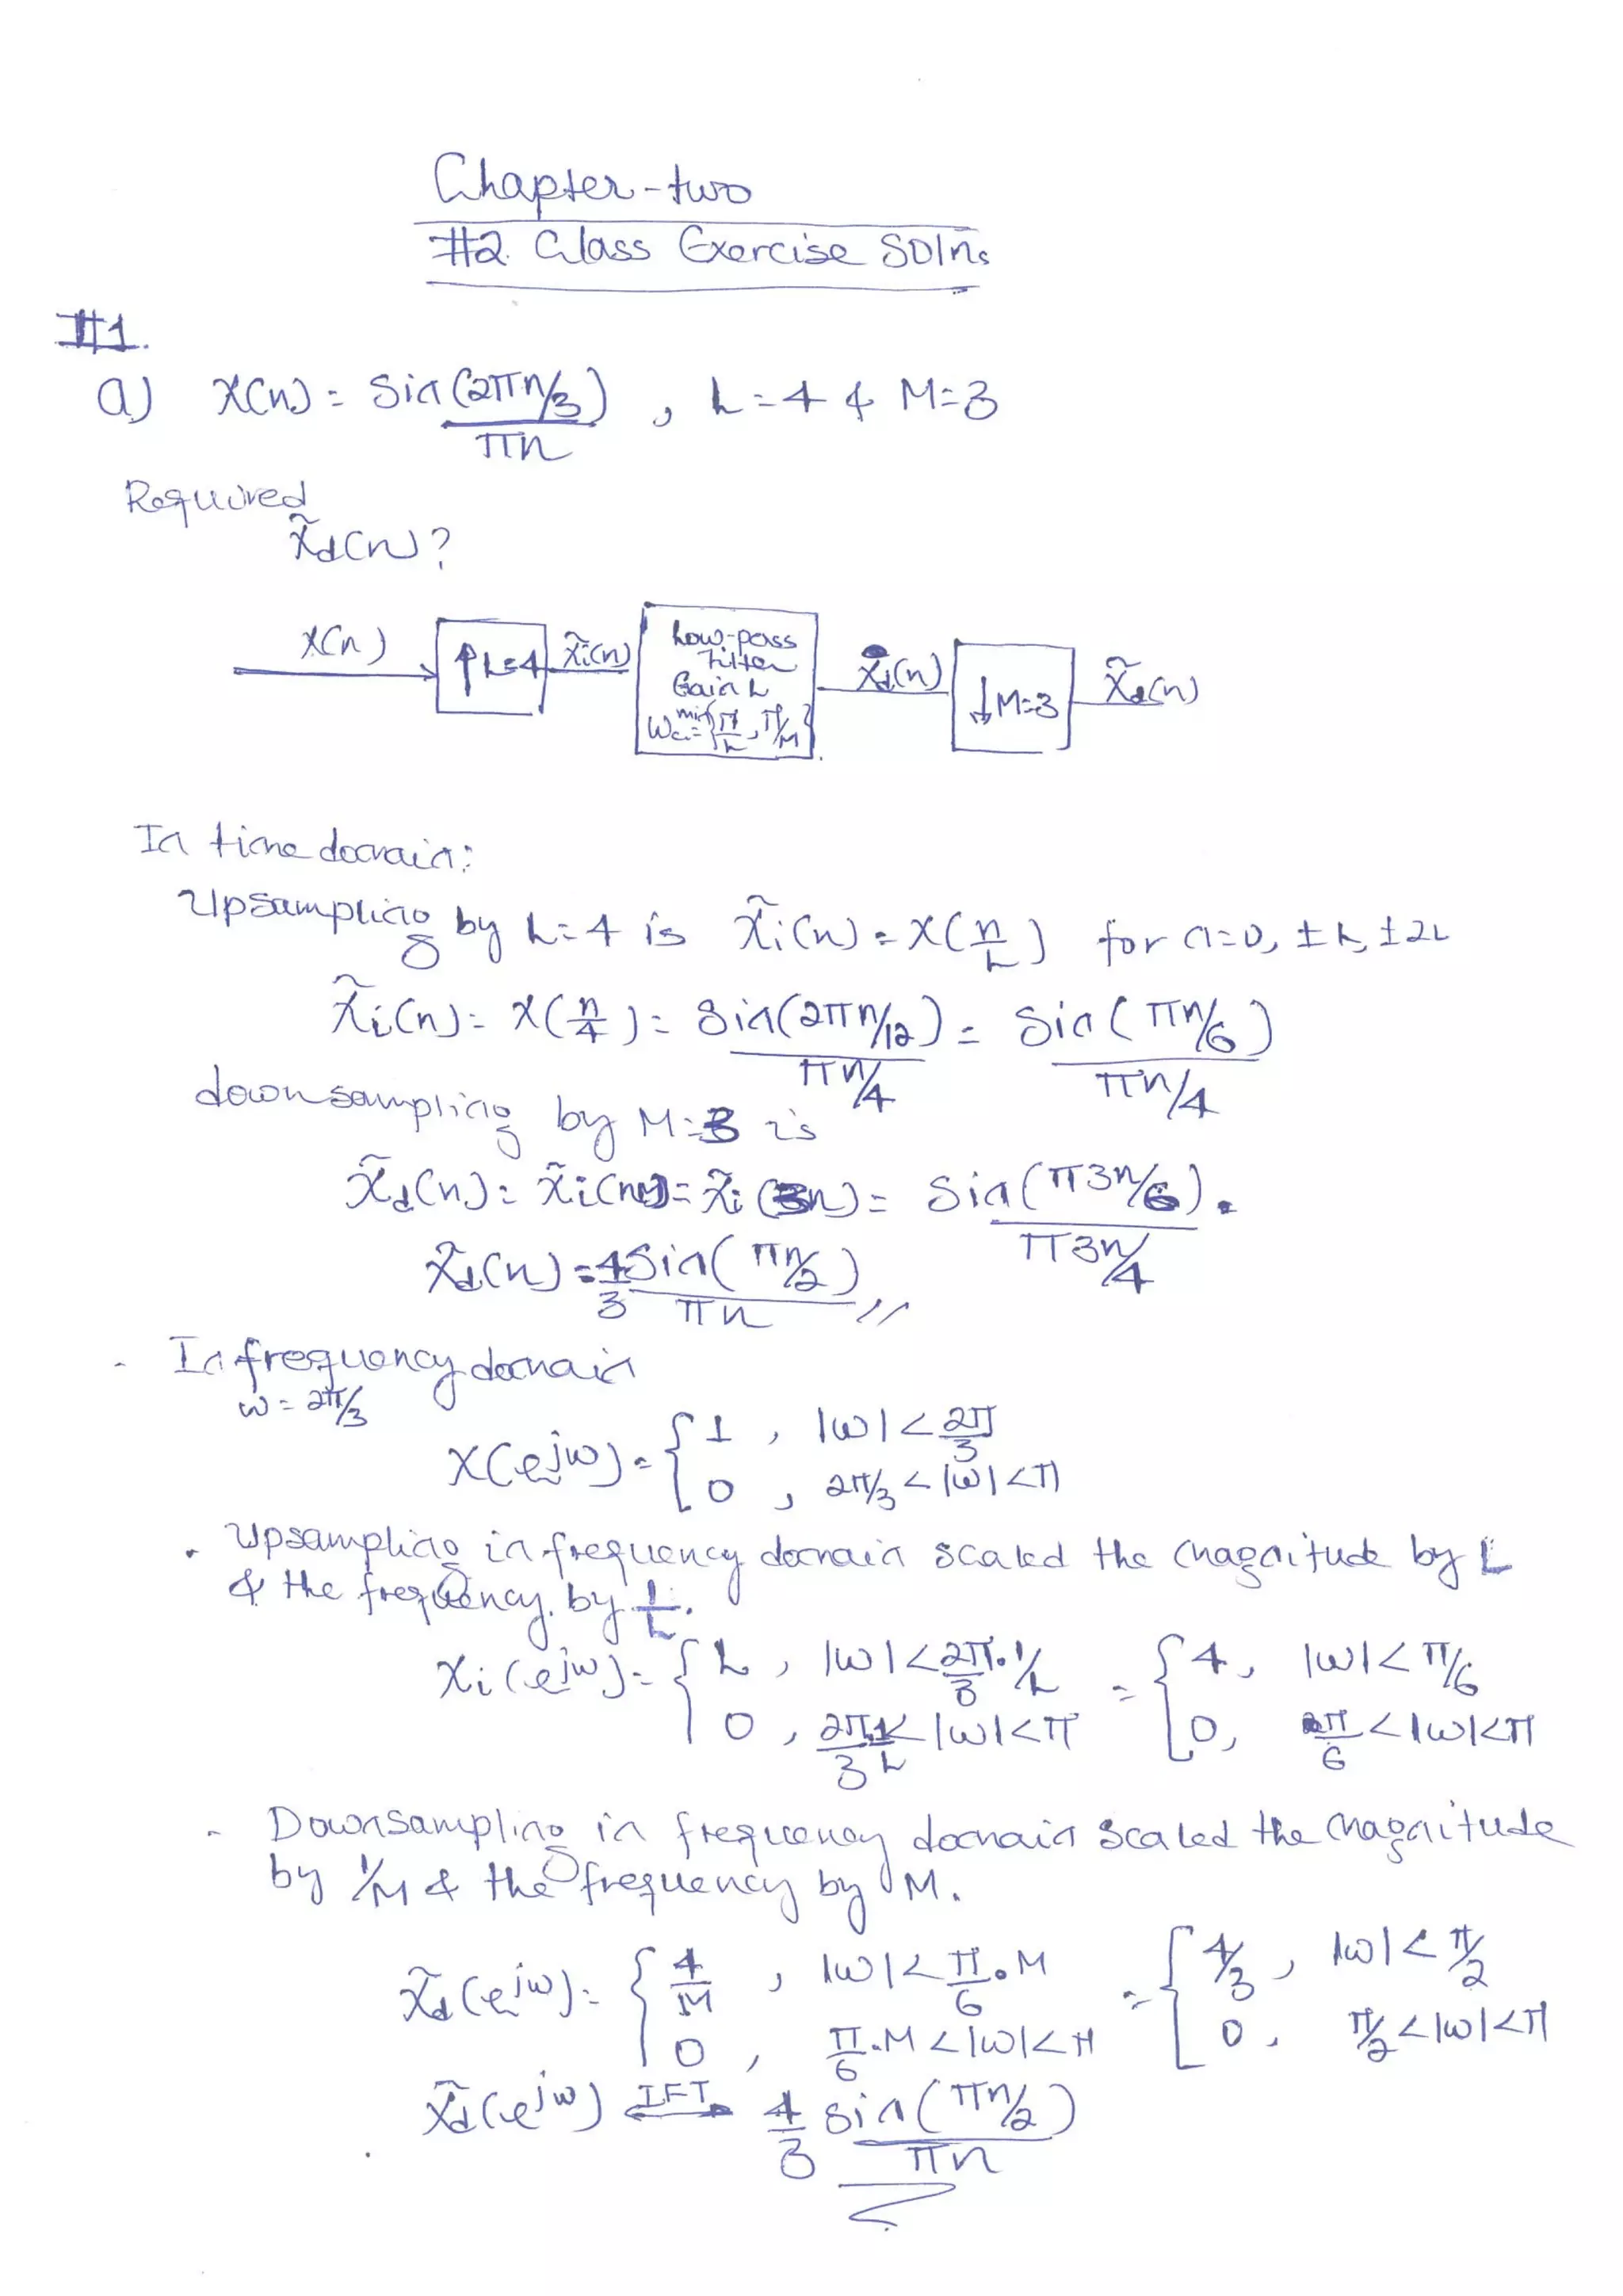 Chapter-two
#2. Class Exercise Soln.
#1.
a) x(n) = Sin(2πn/3) / πn , L=4 & M=3
Required
x̃d(n)?
x(n) ↑L=4 x̃i(n) Low-pass Filter Gain L ωc = min{π/L, π/M} x̃i(n) ↓M=3 x̃d(n)
In time domain:
Upsampling by L=4 is x̃i(n) = x(n/L) for n=0, ±L, ±2L
x̃i(n) = x(n/4) = Sin(2πn/12) / πn/4 = Sin(πn/6) / πn/4
downsampling by M=3 is
x̃d(n) = x̃i(nM) = x̃i(3n) = Sin(π3n/6) / π3n/4 .
x̃d(n) = 4/3 Sin(πn/2) / πn //
- In frequency domain
ω = 2π/3
X(e^jω) = { 1 , |ω| < 2π/3
0 , 2π/3 < |ω| < π
. Upsampling in frequency domain scaled the magnitude by L
& the frequency by 1/L.
Xi(e^jω) = { L , |ω| < 2π/3 . 1/L = { 4, |ω| < π/6
0 , 2π/3 1/L < |ω| < π 0, π/6 < |ω| < π
- Downsampling in frequency domain scaled the magnitude
by 1/M & the frequency by M.
X̃d(e^jω) = { 4/M , |ω| < π/6 . M = { 4/3 , |ω| < π/2
0 , π/6 . M < |ω| < π 0 , π/2 < |ω| < π
X̃d(e^jω) IFT 4/3 sin(πn/2) / πn